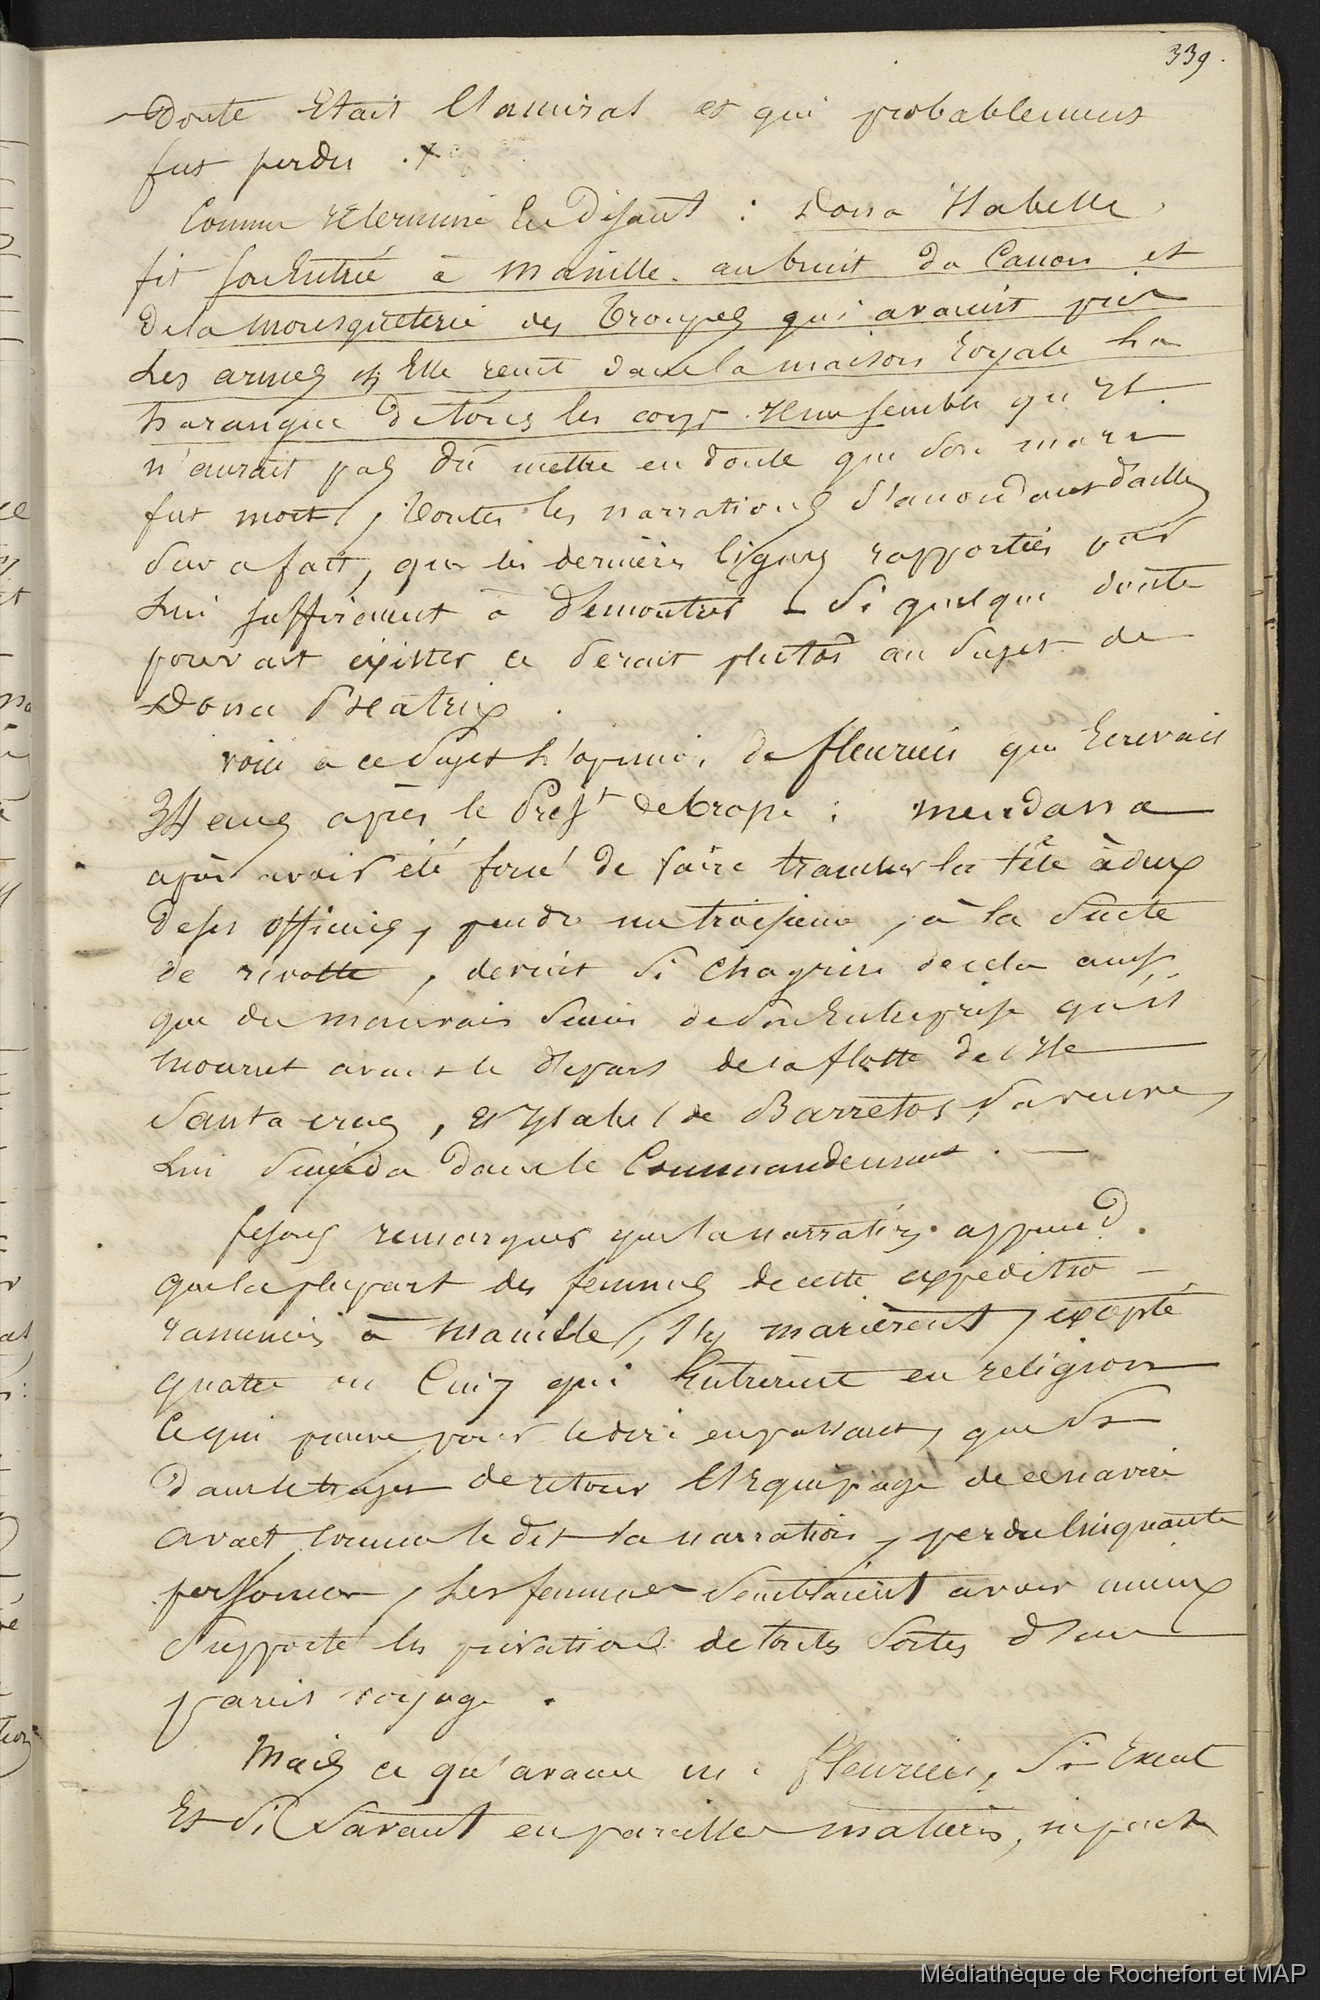 339.
Doute Etait l'amiral et qui probablement
fut perdu . x
Comme il termine En Disant : Dona Isabelle,
fit son Entrée à Manille. au bruit du Canon et
De la mousqueterie des Troupes qui avaient pris
Les armes et Elle recut dans la maison Royale La
harangue De tous les corps. Il me semble qu'il
n'aurait pas Dû mettre en Doute que Son mari
fut mort, Toutes les narrations s'accordant d'ailleurs
Sur ce fait, que les dernières lignes rapportées par
Lui suffiraient à Démontrer - Si quelque doute
pouvait exister ce Serait plutôt au Sujet de
Dona Béatrix .
voici à ce Sujet L'opinion de fleurieu qui Ecrivait
34 ans après le Présd.t de Brosse : Mendana
après avoir été forcé de faire trancher la tête à deux
De ses officiers, pendre un troisieme, à la Suite
de révolte, devint Si Chagrin de cela ainsi
que du mauvais Succès de Son Entreprise qu'il
Mourut avant le départ de la flotte de l'Ile
Santa Cruz, et Ysabel de Barretos, Sa veuve,
Lui Succéda Dans le Commandement . —
fesons remarquer que la narration apprend .
que la plupart des femmes de cette expedition —
ramenées à Manille, S'y marièrent, excepté
quatre ou Cinq qui Entrèrent en religion
Ce qui prouve pour le dire en passant, que Si
Dans le trajet de retour l'Equipage de ce navire
avait comme le dit la narration, perdu Cinquante
personnes, Les femmes Semblaient avoir mieux
Supporté les privations de toutes Sortes d'un
pareil voyage .
Mais ce qu'avance ici fleurieu, Si Exact
Et Si Savant en pareilles matières,
Médiathèque de Rochefort et MAP